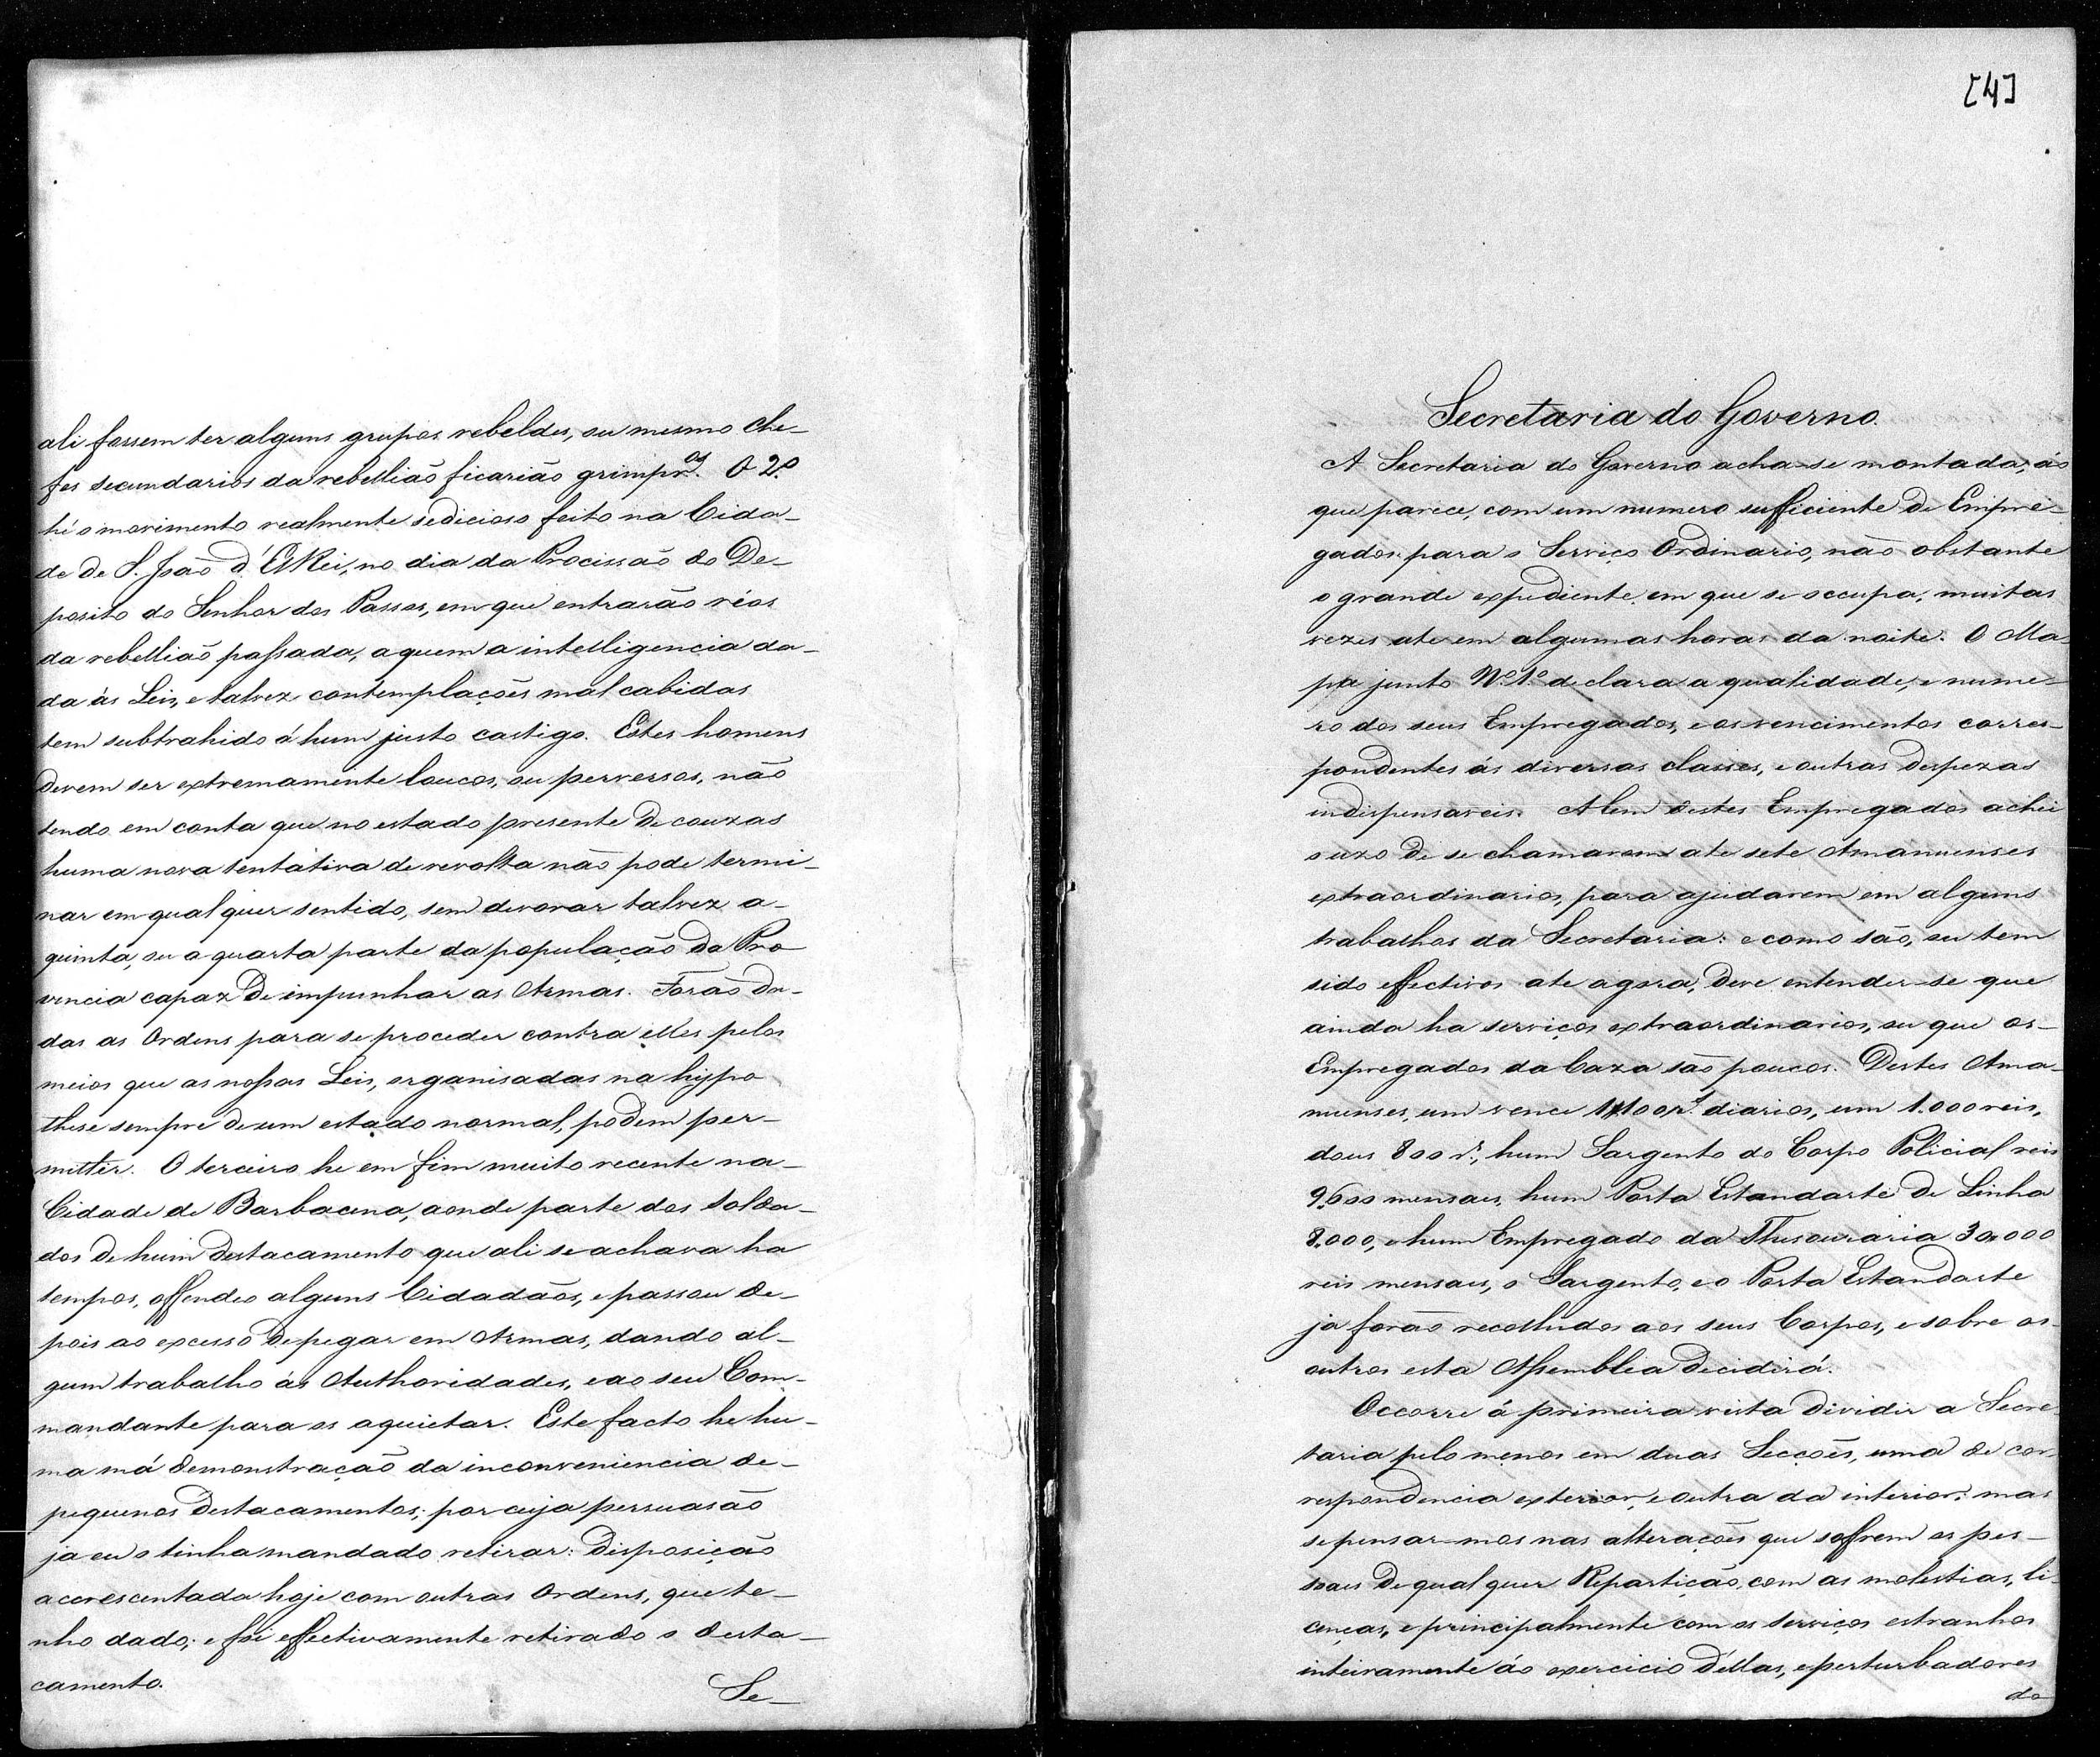 ali fossem ter alguns grupos rebeldes, ou mesmo Che-
fes secundarios da rebellião ficarião O 2º.
hé o movimento realmente sedicioso feito na Cida-
de de S. João d'ElRei, no dia da Procissão do De-
posito do Senhor dos Passos, em que entrarão réos
da rebellião passada, a quem a intelligencia da-
da ás Leis, e talvez contemplações mal cabidas
tem subtrahido á hum justo castigo. Estes homens
devem ser extremamente loucos, ou perversos, não
tendo em conta que no estado presente de couzas
huma nova tentativa de revolta não pode termi-
nar em qualquer sentido, sem devorar talvez a-
quinta, ou a quarta parte da população da Pro
vincia capaz de impunhar as Armas. Forão da-
das as Ordens para se proceder contra elles pelos
meios que as nossas Leis, organisadas na hypo
these sempre de um estado normal, podem per-
mittir. O terceiro he em fim muito recente na-
Cidade de Barbacena, aonde parte dos Solda-
dos de hum destacamento que ali se achava ha
tempos, offendeo alguns Cidadãos, e passou de-
pois ao excesso de pegar em Armas, dando al-
gum trabalho ás Authoridades, e ao seu Com-
mandante para os aquietar. Este facto he hu-
ma má demonstração da inconveniencia de-
pequenos destacamentos; por cuja persuasão
ja eu o tinha mandado retirar: disposição
accrescentada hoje com outras Ordens, que te-
nho dado; e foi effectivamente retirado o desta-
camento.
Se-
[4]
Secretaria do Governo.
A Secretaria do Governo acha-se montada, ao
que parece, com um numero sufficiente de Empre-
gados para o Serviço Ordinario, não obstante
o grande expediente em que se occupa, muitas
vezes ate em algumas horas da noite. O Ma-
pa junto Nº. 1º declara a qualidade, e nume-
ro dos seus Empregados, e os vencimentos corres-
pondentes ás diversas classes, e outras despezas
indispensaveis. Alem destes Empregados achei
o uzo de se chamarem ate sete Amanuenses
extraordinarios, para ajudarem em alguns
trabalhos da Secretaria: e como são, ou tem
sido effectivos ate agora, deve entender-se que
ainda ha serviços extraordinarios, ou que os-
Empregados da Caza são poucos. Destes Ama-
nuenses, um vence diarios, um 1.000 reis,
dous 800 rs., hum Sargento do Corpo Policial reis
9,600 mensaes, hum Porta Estandarte de Linha
8.000, e hum Empregado da Thesouraria 30.000
reis mensaes, o Sargento, e o Porta Estandarte
ja forão recolhidos aos seus Corpos, e sobre os
outros esta Assemblia decidirá.
Occorre á primeira vista dividir a Secre
taria pelo menos em duas Secções, uma de cor-
respondencia exterior, e outra da interior; mas
se pensar-mos nas alterações que soffrem os pes-
soaes de qualquer Repartição, com as molestias, li-
cenças, e principalmente com os serviços estranhos
inteiramente ao exercicio d'ellas, e perturbadores
do